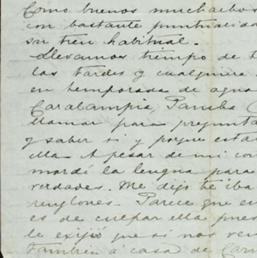 Como buenos muchachos
con bastante puntualidad
su tren habitual.
Llevamos tiempo de t
las tardes y cualquiera
en temporada de agua
Caralampia, Pancha
llamar para pregunta
y saber si y porque esta
ella A pesar de mi co
mordí la lengua para
verdades. Me dijo te iba
renglones. Parece que en
es de culpar ella pues
le exijió que si nos ve
también á casa de Car